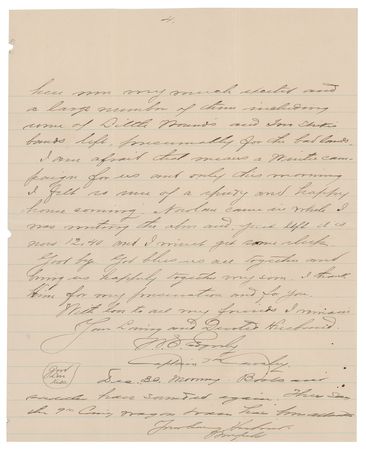 4.
here now very much excited and
a large number of them including
some of Little Wounds and Two Strikes
bands left, presumably for the bad lands.
I am afraid that means a Winter cam-
paign for us and only this morning
I felt so sure of a speedy and happy
home coming. Nolan came in while I
was writing the above and just left it is
now 12.40 and I must get some sleep
Good by. God bless us all together and
bring us happily together very soon. I thank
Him for my preservation and for you.
With love to all my friends I remain
Your Loving and Devoted Husband.
Captain 7th Cavalry.
Dec. 30. Morning. Both
have again. There
the 9th Cavy wagon train
Your loving Husband